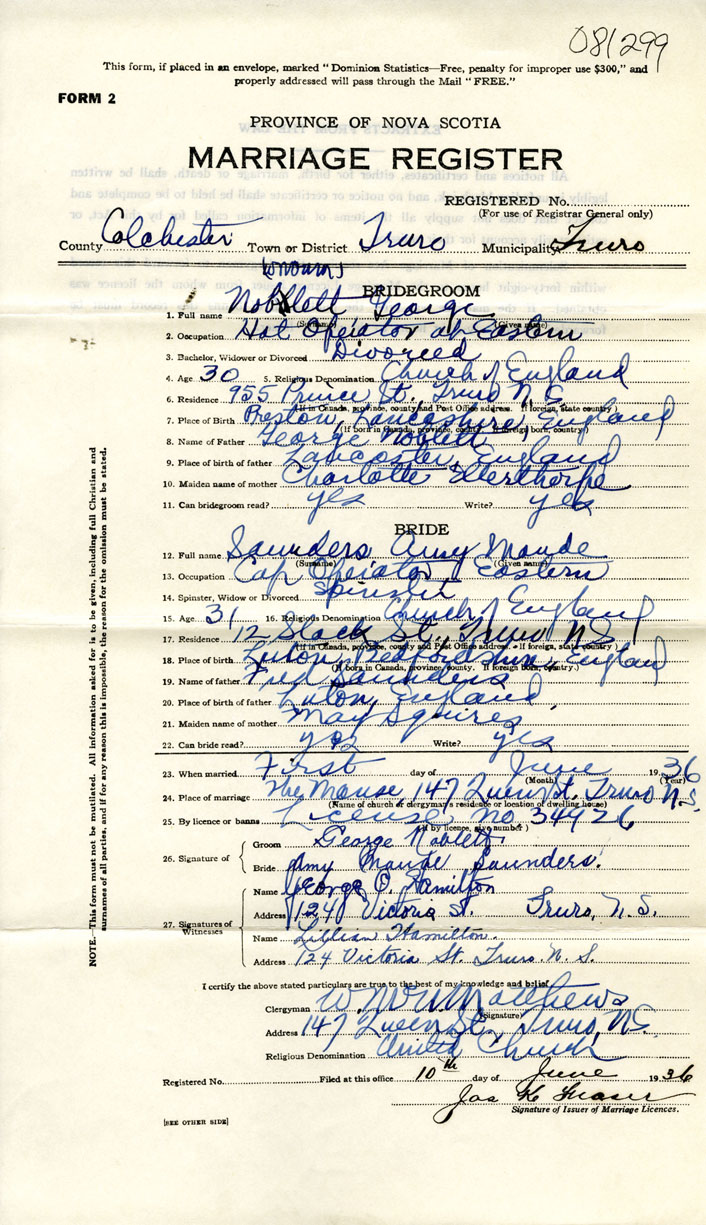 081299
This form, if placed in an envelope, marked "Dominion Statistics—Free, penalty for improper use $300," and
properly addressed will pass through the Mail "FREE."
FORM 2
PROVINCE OF NOVA SCOTIA
MARRIAGE REGISTER
REGISTERED No.
(For use of Registrar General only)
County Colchester Town or District Truro Municipality Truro
BRIDEGROOM
1. Full name Noblett George
(Surname) (Given name)
2. Occupation Hat Operator at Eastern
3. Bachelor, Widower or Divorced Divorced
4. Age 30 5. Religious Denomination Church of England
6. Residence 955 Prince St. Truro N.S.
(If in Canada, province, county and Post Office address. If foreign, state country)
7. Place of Birth Preston, Lancashire, England
(If born in Canada, province, county. If foreign born, country.)
8. Name of Father George Noblett
9. Place of birth of father Lancaster, England
10. Maiden name of mother Charlotte Ellerthorpe
11. Can bridegroom read? yes Write? yes
BRIDE
12. Full name Saunders Amy Maude
(Surname) (Given name)
13. Occupation Cap Operator Eastern
14. Spinster, Widow or Divorced Spinster
15. Age 31 16. Religious Denomination Church of England
17. Residence 12 Slack St., Truro N.S.
(If in Canada, province, county and Post Office address. If foreign, state country)
18. Place of birth Luton, Bedfordshire, England
(If born in Canada, province, county. If foreign born, country.)
19. Name of father Fred Saunders
20. Place of birth of father Luton, England
21. Maiden name of mother May Squires
22. Can bride read? yes Write? yes
23. When married First day of June 1936
(Month) (Year)
24. Place of marriage The Manse, 147 Queen St. Truro N.S.
(Name of church or clergyman's residence or location of dwelling house)
25. By licence or banns License no 34926
(If by licence, give number)
26. Signature of
Groom George Noblett
Bride Amy Maude Saunders.
27. Signatures of Witnesses
Name George O. Hamilton
Address 124 Victoria St. Truro, N.S.
Name Lillian Hamilton.
Address 124 Victoria St. Truro. N. S.
I certify the above stated particulars are true to the best of my knowledge and belief.
Clergyman Matthews
(Signature)
Address 147 Queen St., Truro, N.S.
Religious Denomination United Church
Registered No. Filed at this office 10th day of June 1936
Jas K Fraser
Signature of Issuer of Marriage Licences.
[SEE OTHER SIDE]
NOTE.—This form must not be mutilated. All information asked for is to be given, including full Christian and
surnames of all parties, and if for any reason this is impossible, the reason for the omission must be stated.